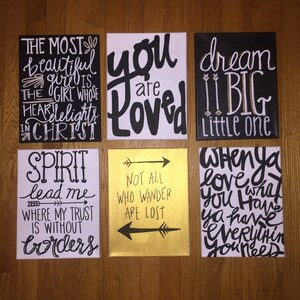 THE MOST
beautiful
girl IS
THE GIRL WHOSE
HEART
delights
IN CHRIST
you
are
loved
dream
BIG
little one
SPIRIT
lead me
WHERE MY TRUST
IS WITHOUT
borders
NOT ALL
WHO WANDER
ARE LOST
when ya
love
what
you Have
ya have
everything
you need